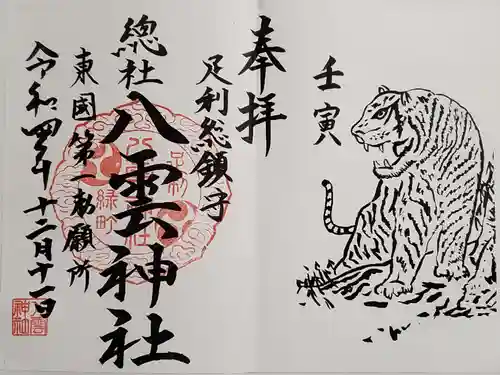 壬寅
奉拝
足利総鎮守
總社
八雲神社
東國第一勅願所
令和四年十二月十一日
足利
緑町